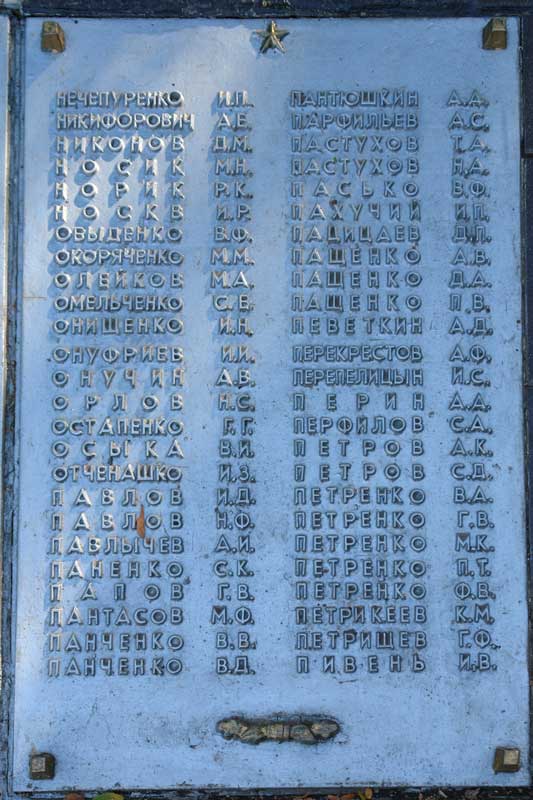 НЕЧЕПУРЕНКО И.П.
НИКИФОРОВИЧ А.Е.
НИКОНОВ Д.М.
НОСИК М.Н.
НОРИК Р.К.
НОСКВ И.Р.
ОВЫДЕНКО В.Ф.
ОКОРЯЧЕНКО М.М.
ОЛЕЙКОВ М.А.
ОМЕЛЬЧЕНКО С.Е.
ОНИЩЕНКО И.Н.
ОНУФРИЕВ И.И.
ОНУЧИН А.В.
ОРЛОВ Н.С.
ОСТАПЕНКО Г.Г.
ОСЫКА В.И.
ОТЧЕНАШКО И.З.
ПАВЛОВ И.Д.
ПАВЛОВ Н.Ф.
ПАВЛЫЧЕВ А.И.
ПАНЕНКО С.К.
ПАПОВ Г.В.
ПАНТАСОВ М.Ф.
ПАНЧЕНКО В.В.
ПАНЧЕНКО В.Д.
ПАНТЮШКИН А.Д.
ПАРФИЛЬЕВ А.С.
ПАСТУХОВ Т.А.
ПАСТУХОВ Н.А.
ПАСЬКО В.Ф.
ПАХУЧИЙ И.П.
ПАЦИЦАЕВ Д.П.
ПАЩЕНКО А.В.
ПАЩЕНКО Д.А.
ПАЩЕНКО П.В.
ПЕВЕТКИН А.Д.
ПЕРЕКРЕСТОВ А.Ф.
ПЕРЕПЕЛИЦЫН И.С.
ПЕРИН А.А.
ПЕРФИЛОВ С.А.
ПЕТРОВ А.К.
ПЕТРОВ С.Д.
ПЕТРЕНКО В.А.
ПЕТРЕНКО Г.В.
ПЕТРЕНКО М.К.
ПЕТРЕНКО П.Т.
ПЕТРЕНКО Ф.В.
ПЕТРИКЕЕВ К.М.
ПЕТРИЩЕВ Г.Ф.
ПИВЕНЬ И.В.